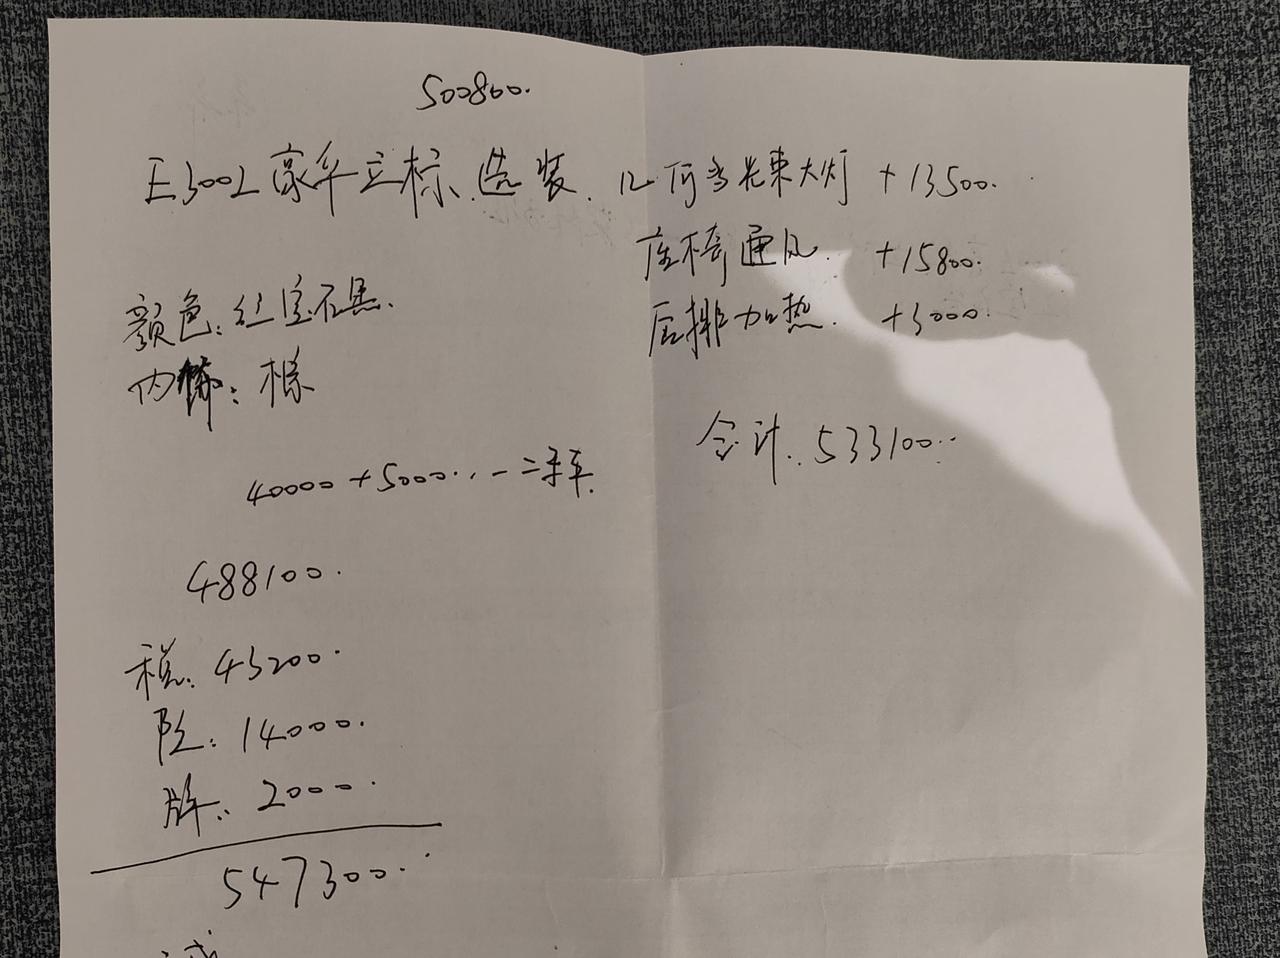 500800.
E300L豪华立标.选装.几何多光束大灯 +13500.
座椅通风. +15800.
颜色:红宝石黑.
后排加热. +3000.
内饰:棕
合计.533100..
40000+5000..一二手车.
488100.
税:43200.
险:14000.
牌:2000.
547300.